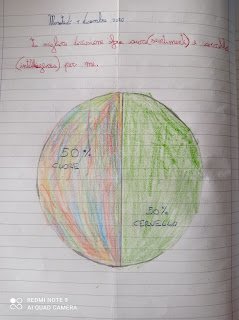 Martedì 1 dicembre 2020
Il migliore
cuore (sentimenti) e cervello
(intelligenza) per me.
50%
CUORE
50%
CERVELLO
REDMI NOTE 9
AI QUAD CAMERA